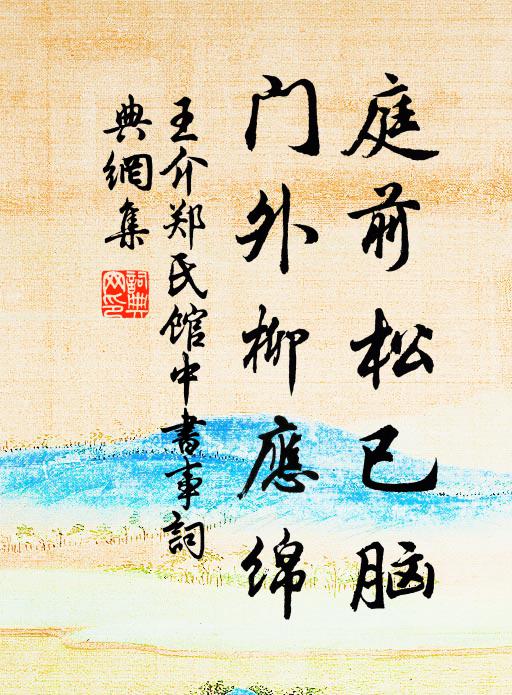 庭前松已脑
门外柳應绵
王介郑氏馆中書事詞
典網集
詞典网印